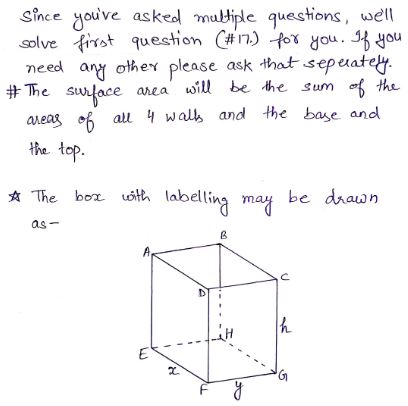 Since you've asked multiple questions, we'll
solve first question (#17.) for you. If you
need any other please ask that seperately.
# The surface area will be the sum of the
areas of all 4 walls and the base and
the top.
☆ The box with labelling may be drawn
as-
B
A
C
D
h
H
E
x
G
F
y